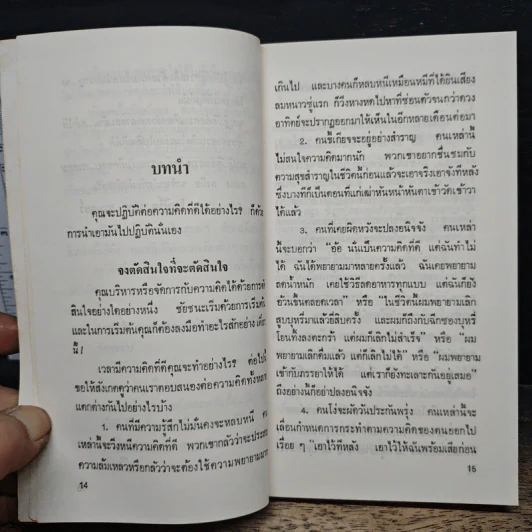 บทนำ
คุณจะปฏิบัติต่อความคิดที่ดีได้อย่างไร? ก็ด้วย
การนำเอามันไปปฏิบัตินั่นเอง
จงตัดสินใจที่จะตัดสินใจ
คุณบริหารหรือจัดการกับความคิดได้ด้วยการ
สินใจอย่างใดอย่างหนึ่ง ชัยชนะเริ่มด้วยการเริ่มต้น
และในการเริ่มต้นคุณก็ต้องลงมือทำอะไรสักอย่าง
นี้!
เวลามีความคิดที่ดีคุณจะทำอย่างไร? ต่อไปนี้
ขอให้สังเกตดูว่าคนเราตอบสนองต่อความคิดทั้งหลาย
แตกต่างกันไปอย่างไรบ้าง
1. คนที่มีความรู้สึกไม่มั่นคงจะหลบหนี
เหล่านี้จะวิ่งหนีความคิดที่ดี พวกเขากลัวว่าจะประสบ
ความล้มเหลวหรือกลัวว่าจะต้องใช้ความพยายามมาก
14
เกินไป และบางคนก็หลบหนีเหมือนหมีที่ได้ยินเสียง
ลมหนาวซู่แรก ก็วิ่งหางหดไปหาที่ซ่อนตัวจนกว่าดวง
อาทิตย์จะปรากฏออกมาให้เห็นในอีกหลายเดือนต่อมา
2. คนขี้เกียจจะอยู่อย่างสำราญ คนเหล่านี้
ไม่สนใจความคิดมากนัก พวกเขาอยากชื่นชมกับ
ความสุขสำราญในชีวิตก่อนแล้วจะเอาจริงเอาจังทีหลัง
ซึ่งบางทีก็เป็นตอนที่แก่เฒ่าหันหน้าหันตาเข้าวัดเข้าวา
ได้แล้ว
3. คนที่เคยผิดหวังจะปลงอนิจจัง คนเหล่า
นี้จะบอกว่า “อ้อ นั่นเป็นความคิดที่ดี แต่ฉันทำไม่
ได้ ฉันได้พยายามมาหลายครั้งแล้ว ฉันเคยพยายาม
ลดน้ำหนัก เคยใช้วิธีลดอาหารทุกแบบ แต่ฉันก็ยัง
อ้วนขึ้นตลอดเวลา” หรือ “ในชีวิตนี้ผมพยายามเลิก
สูบบุหรี่มาแล้วยี่สิบครั้ง และผมก็ถึงกับฉีกซองบุหรี่
โยนทิ้งลงตะกร้า แต่ผมก็เลิกไม่สำเร็จ” หรือ “ผม
พยายามเลิกดื่มแล้ว แต่ก็เลิกไม่ได้” หรือ “ผมพยายาม
เข้ากับภรรยาให้ได้ แต่เราก็ยังทะเลาะกันอยู่เสมอ”
ถึงอย่างนี้ก็อย่าปลงอนิจจัง
4. คนโง่จะผัดวันประกันพรุ่ง คนเหล่านี้จะ
เลื่อนกำหนดการกระทำตามความคิดของตนออกไป
เรื่อย ๆ “เอาไว้ทีหลัง เอาไว้ให้ฉันพร้อมเสียก่อน
15